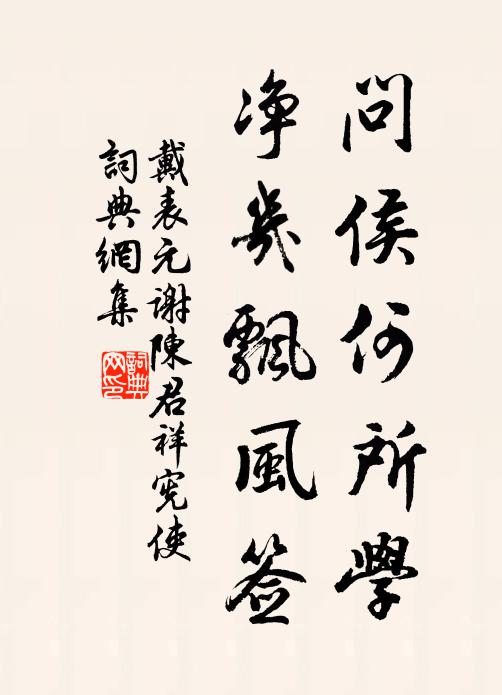 問侯何所學
净幾飄風签
戴表元謝陳君祥宪使
詞典網集
詞典网印